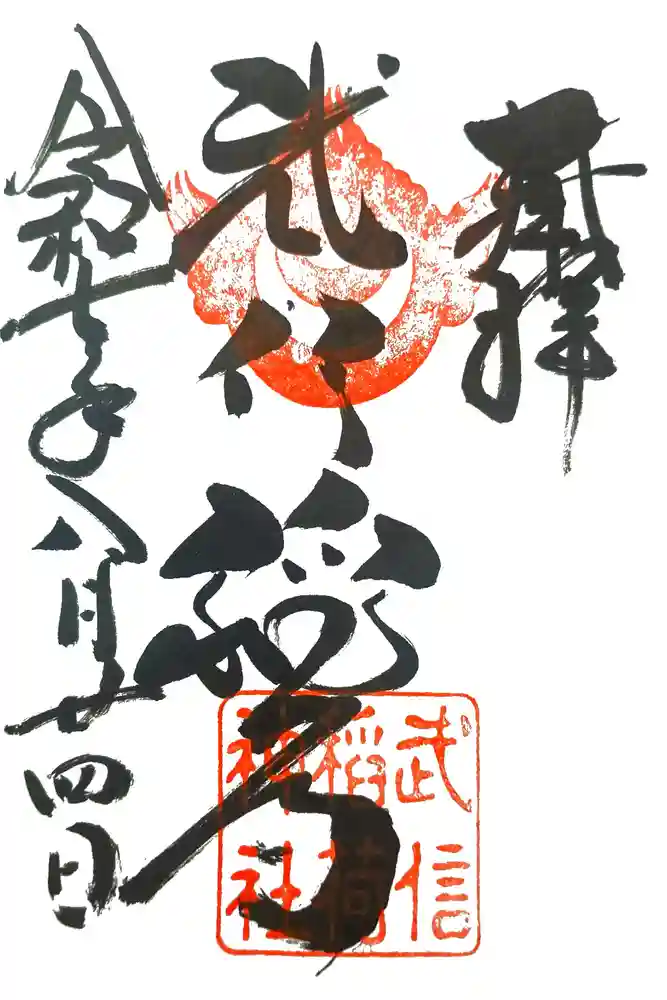 奉拝
武信稲荷
武信
稲荷
神社
令和七年八月廿四日